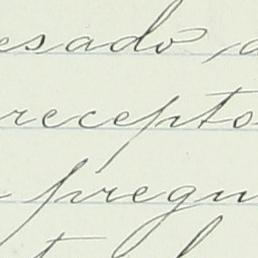 esado
recepto
pregun